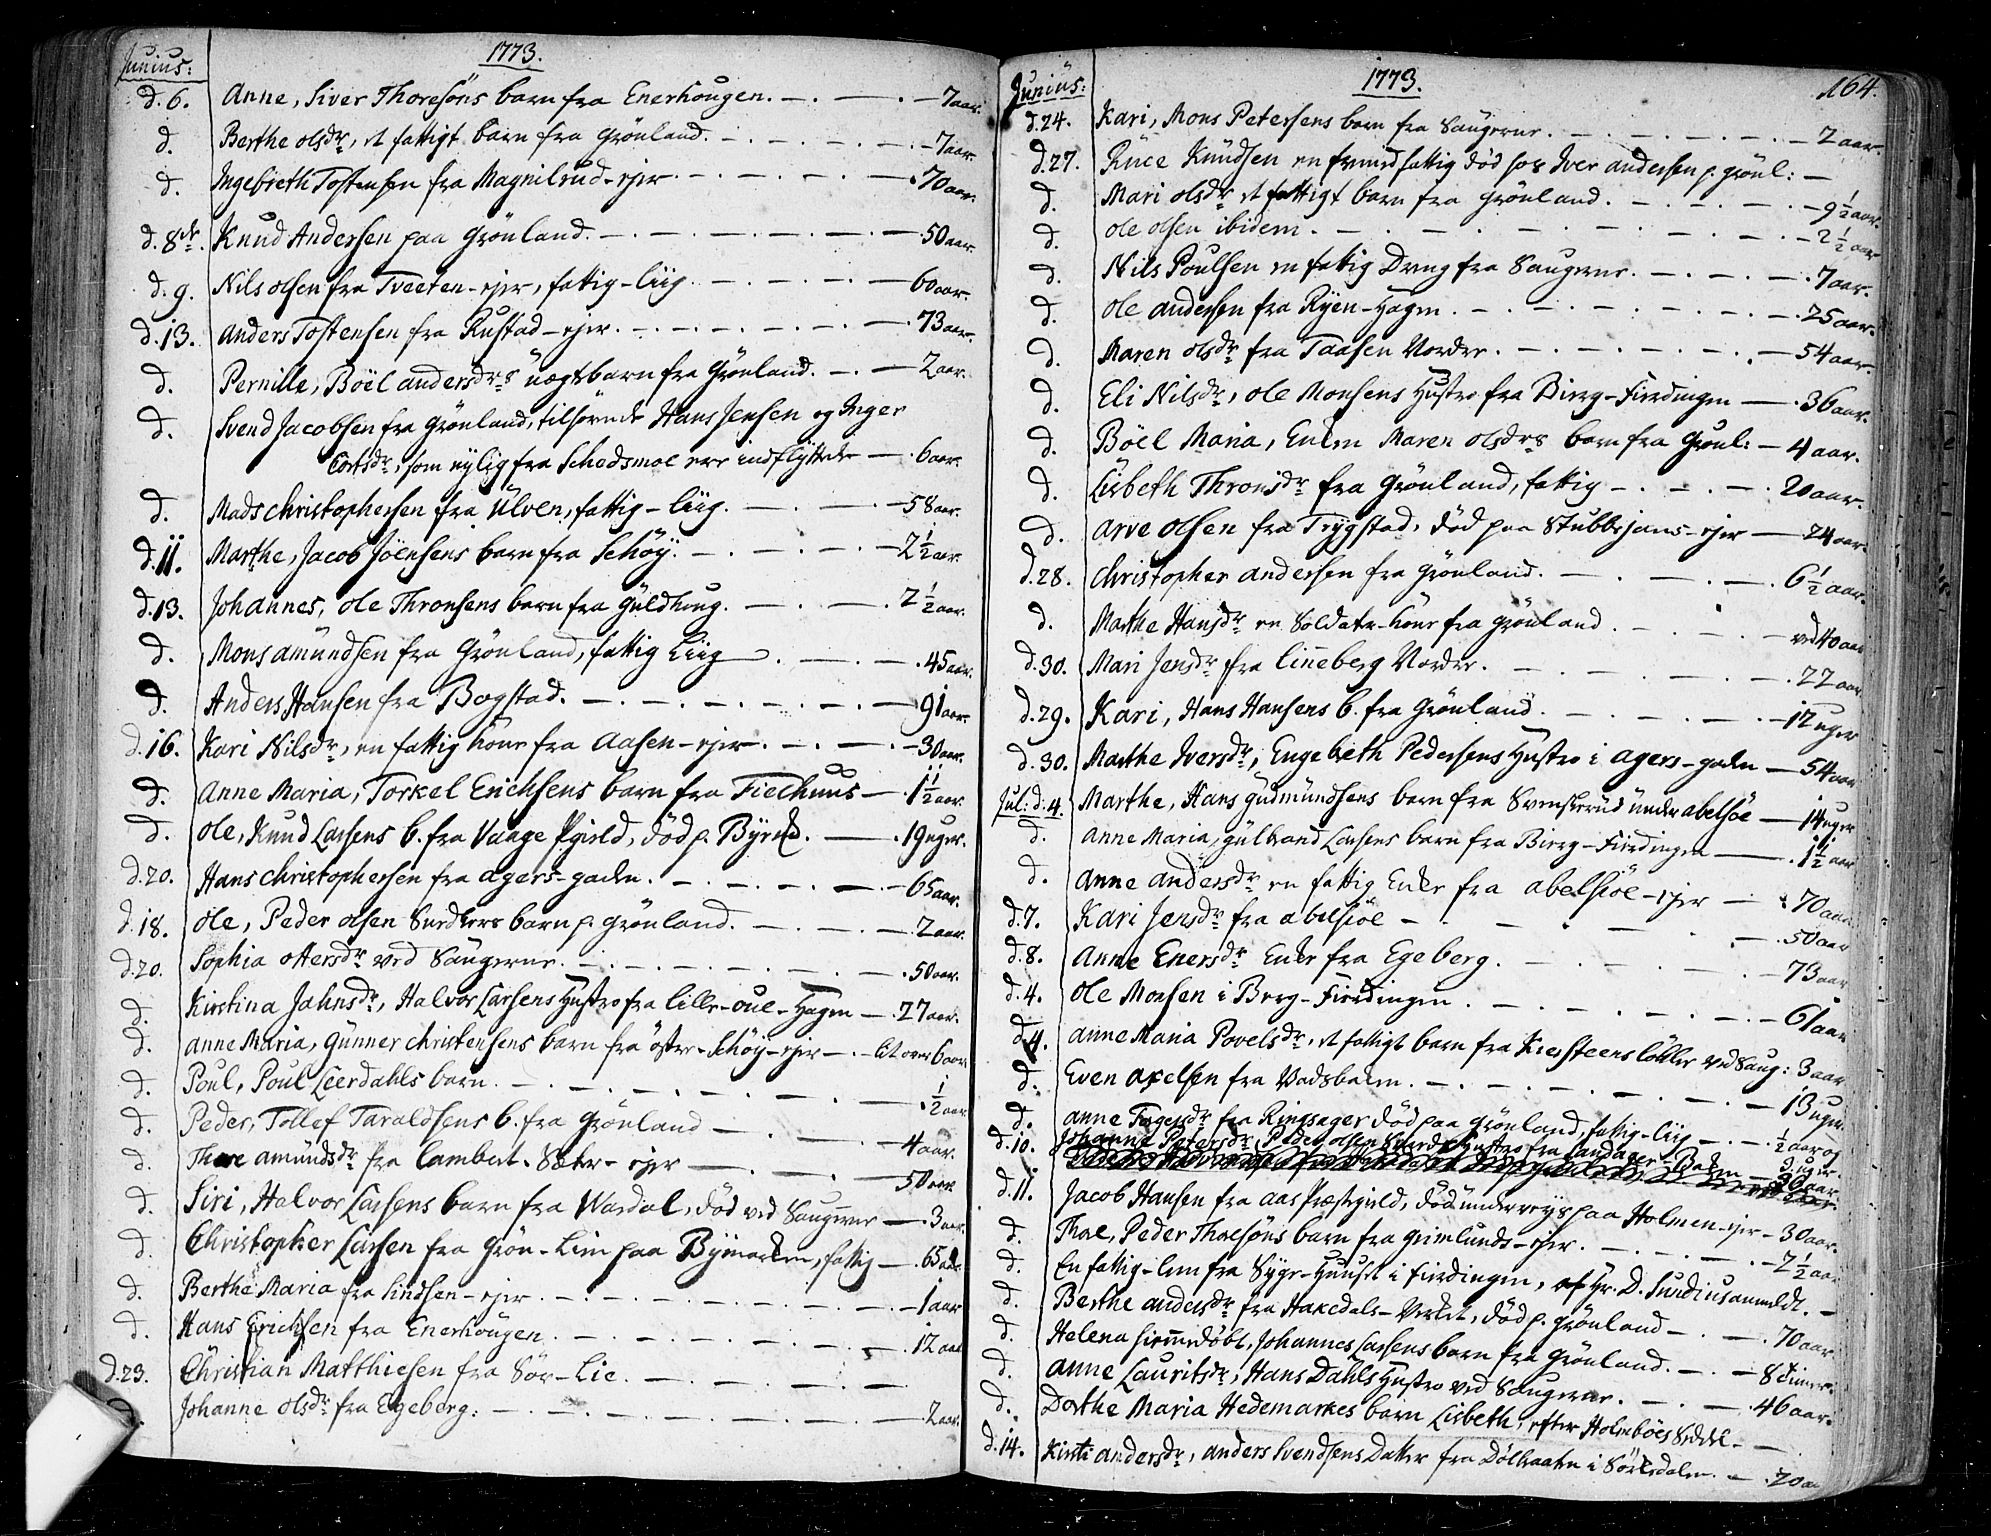 Junius: 1773.
d. 6. Anne, Siver Thoresöns barn fra Enerhougen. 7 aar.
d. Berthe olsdr, et fattigt barn fra Grönland. 7 aar.
d. Ingebreth Tostensen fra Magnilrud-ejer 70 aar.
d. 8de. Knud Andersen paa Grönland. 50 aar.
d. 9. Nils olsen fra Tveeten-ejer, fattig-Liig. 60 aar.
d. 13. Anders Tostensen fra Rustad-ejer. 73 aar.
d. Pernille, Böel andersdrs uægtebarn fra Grönland. 2 aar.
d. Svend Jacobsen fra Grönland, tilhörende Hans Jensen og Inger
som nylig fra Schedsmoe ere indflyttede 6 aar.
d. Mads christophersen fra Ulven, fattig-Liig. 58 aar.
d. 11. Marthe, Jacob Joensens barn fra Schöy. 2 1/2 aar.
d. 13. Johannes, ole Thronsens barn fra Guldhoug. 2 1/2 aar.
d. Mons amundsen fra Grönland, fattig Liig 45 aar.
d. Anders Hansen fra Bogstad. 91 aar.
d. 16. Kari Nilsdr, en fattig Kone fra Aasen-ejer. 30 aar.
d. Anne Maria, Torkel Erichsens barn fra Fielhuus 1 1/2 aar.
d. ole, Knud Larsens b. fra Vaage Pgield, död p. 19 uger.
d. 20. Hans christophersen fra agers-gaden. 65 aar.
d. 18. ole, Peder olsen barn p. Grönland. 2 aar.
d. 20. Sophia ottersdr ved Saugerne. 50 aar.
d. Kirstina Jahnsdr, Halvor Larsens Hustro fra Lille-oue-Hagen 27 aar.
d. anne Maria, Gunner christensens barn fra östre-Schöy-ejer lit over 6 aar.
d. Poul, Poul Leerdahls barn. 1/2 aar.
d. Peder, Tollef Taraldsens b. fra Grönland 4 aar.
d. Thore amundsdr fra Lambert-Sæter-ejer 50 aar.
d. Siri, Halvor Larsens barn fra Wardal, död ved Saugerne 3 aar.
d. Christopher Larsen fra Grön-Liin paa Bymarken, fattig 65 aar.
d. Berthe Maria fra Lindsen-ejer 1 aar
d. Hans Erichsen fra Enerhougen. 12 aar
d. 23. Christian Matthiesen fra Sör-Lie.
d. Johanne olsdr fra Egeberg. 2 aar.
Junius: 1773. 164.
d. 24. Kari, Mons Petersens barn fra Saugerne. 2 aar.
d. 27. Ruce Knudsen en fremmed fattig död hos Iver andersen p. Grönl:
d. Mari olsdr et fattigt barn fra Grönland. 9 1/2 aar.
d. ole olsen ibidem. 2 1/2 aar
d. Nils Poulsen en fattig Dreng fra Saugerne. 7 aar.
d. ole andersen fra Ryen-Hagen 25 aar.
d. Maren olsdr fra Taasen Nordre. 54 aar.
d. Eli Nilsdr, ole Monsens Hustro fra Bierg-Fierdingen 36 aar.
d. Böel Maria, Enken Maren olsdrs barn fra Grönl: 4 aar.
d. Lisbeth Thronsdr fra Grönland, fattig 20 aar.
d. Arve olsen fra Trygstad, död paa Stubbejans-ejer 24 aar.
d. 28. Christopher andersen fra Grönland. 6 1/2 aar.
d. Marthe Hansdr en Soldate-Kone fra Grönland ved 40 aar
d. 30. Mari Jensdr fra Linneberg Nordre. 22 aar
d. 29. Kari, Hans Hansens b. fra Grönland. 12 uger
d. 30. Marthe Iversdr, Engebreth Pedersens Hustro i agers-gaden 54 aar
Jul: d. 4. Marthe, Hans Gudmundsens barn fra Svenskerud under abelsöe 14 uger
d. anne Maria, Gulbrand Larsens barn fra Bierg-Fierdingen 1 1/2 aar
d. Anne andersdr en fattig Enke fra abelsiöe-ejer 70 aar
d. 7. Kari Jensdr fra abelsiöe 50 aar
d. 8. Anne Enersdr Enke fra Egeberg. 73 aar
d. 4. Ole Monsen i Berg-Fierdingen 61 aar
d. 4. anne Maria Povelsdr, et fattigt barn fra Kiersteens lökke ved Saug: 3 aar
d. Even axelsen fra Vadsbaken. 13 uger.
d. anne fra Ringsager död paa Grönland, fattig-Liig 1/2 aar og 3 uger.
d. 10. Johanne Petersdr, Peder olsen Hustro fra 30 aar.
d. 11. Jacob Hansen fra aas Præstgield, död underveys paa Holmen-ejer 30 aar.
d. Thoe, Peder Thoesöns barn fra Grimlunds-ejer. 2 1/2 aar
d. En fattig-Lem fra Syge-Huuset i Fierdingen, af Hr. D. Sundius anmeldt.
d. Berthe andersdr fra Hakedals-Verket, död p. Grönland 70 aar
d. Helena hiemmedöbt, Johannes Larsens barn fra Grönland. 8 timer.
d. Anne Lauritsdr, Hans Dahls Hustro ved Saugerne. 46 aar.
d. Dorthe Maria Hedemarkes barn Lisbeth, efter Holmboes Seddel.
d. 14. Kirsti andersdr, anders Svendsens Datter fra Dölbaaten i Sörkedalen. 20 aa